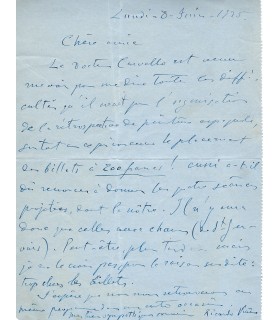 Lundi - 8 - Juin - 1925
Chère amie
Le Docteur Carvallo est venu
me voir pour me dire toute les diffi-
cultés qu'il avait pour l'organisation
de la rétrospective de peinture espagnole,
surtout en ce qui concerne le placement
des billets à 200 francs! aussi a-t-il
dû renoncer à donner les quatre séances
projetées, dont la nôtre. Il n'y aura
donc que celles aux chars
Peut-être plus tard
je ne le crois pas pour la raison susdite:
trop chers les billets.
J'espère que nous nous retrouverons
même une autre occasion.
sympathique souvenir Ricardo Viñes